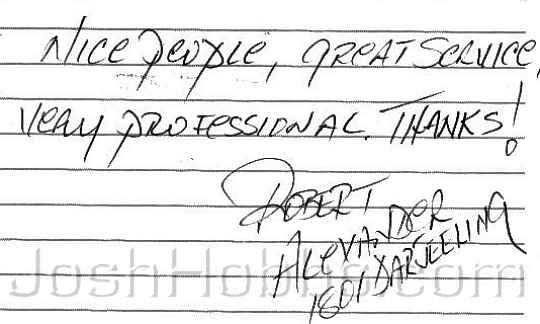 Nice people, great service,
very professional. Thanks!
Robert
Alexander
1801 Darjeeling